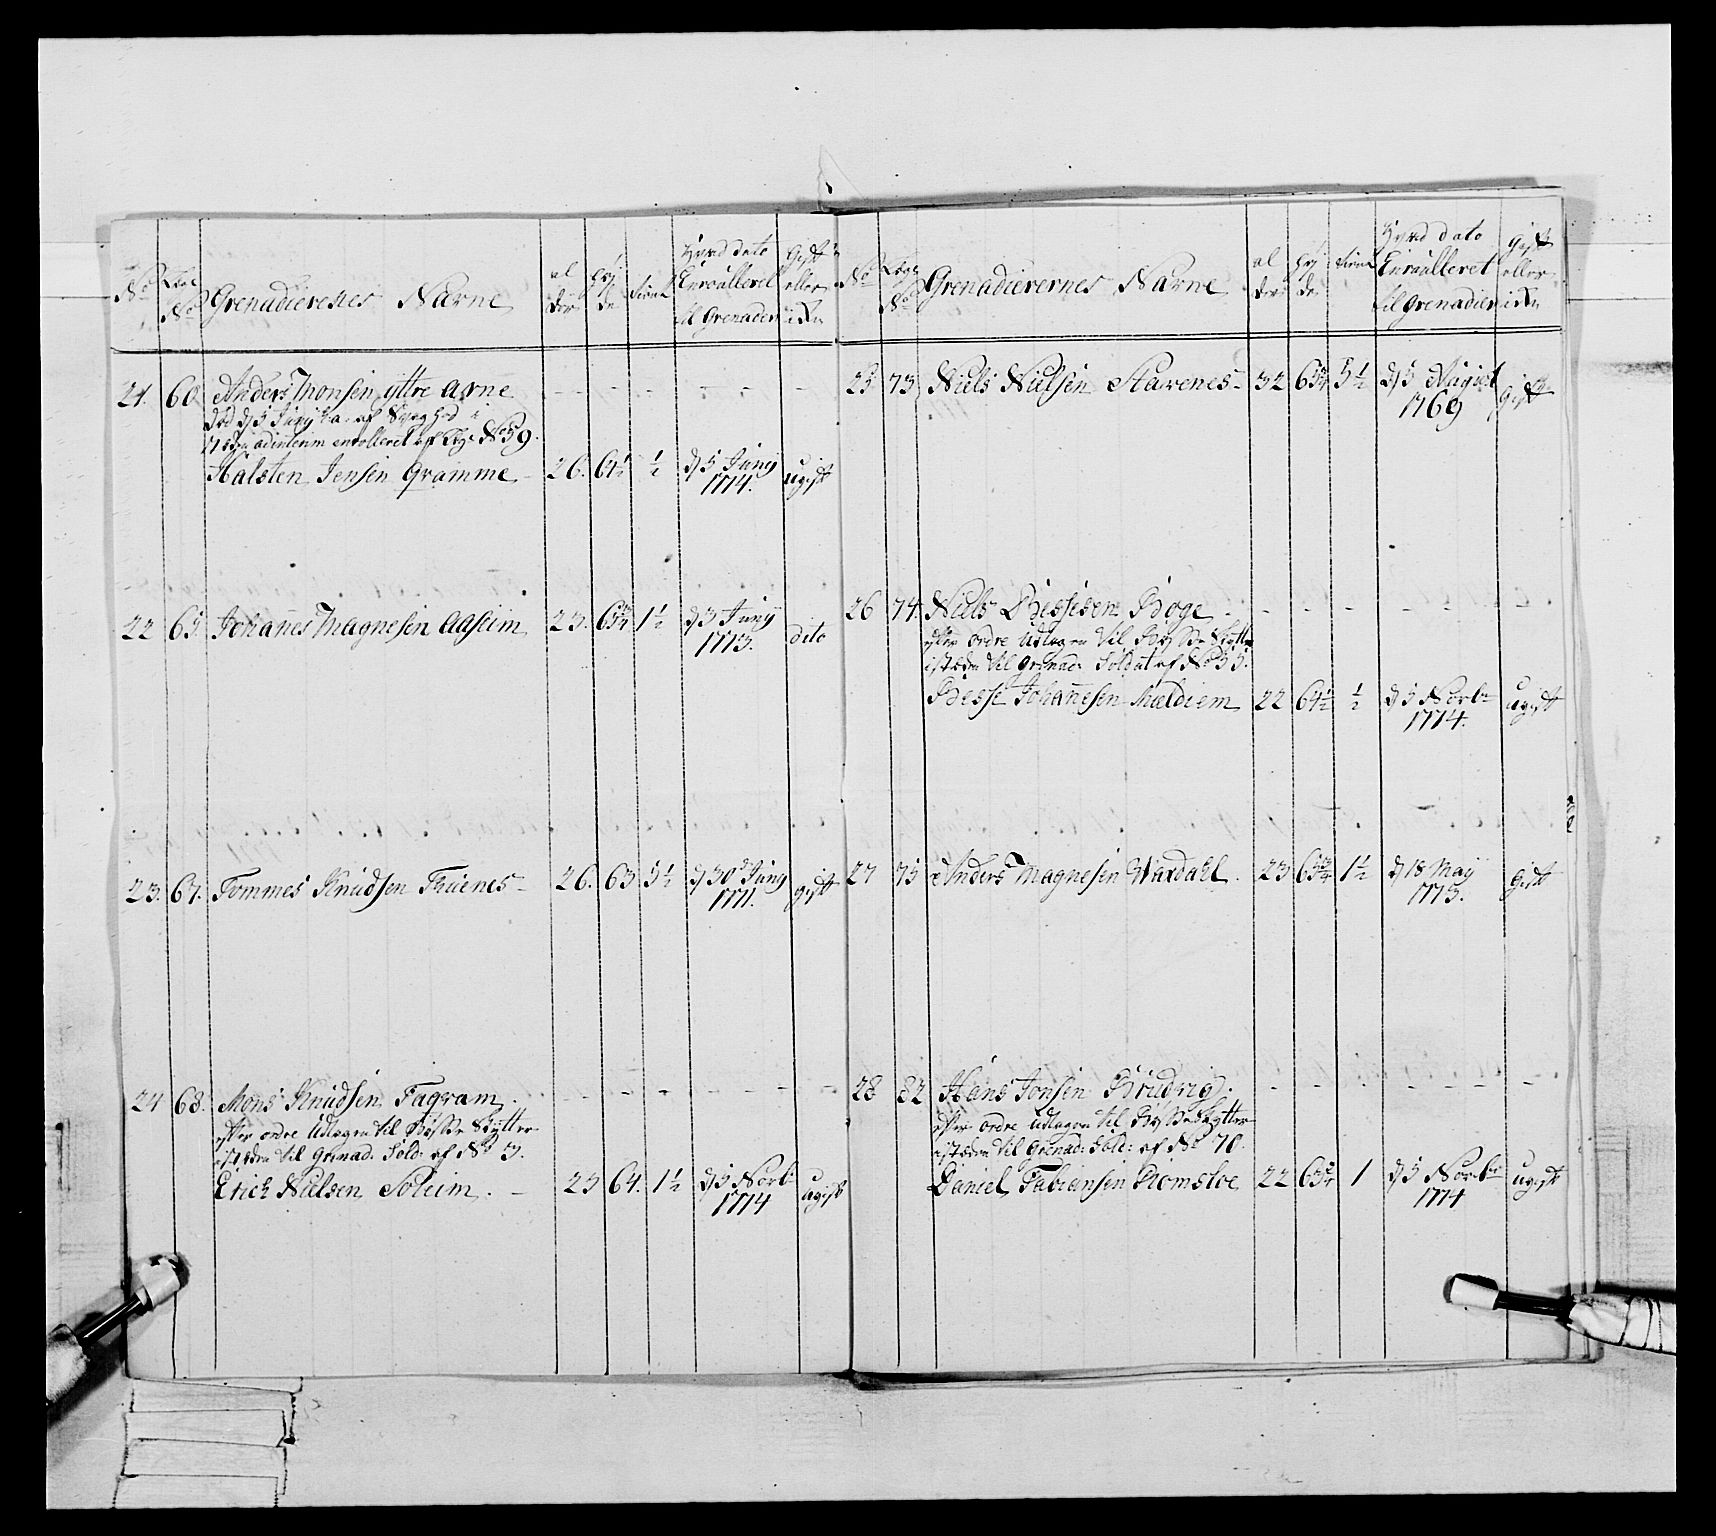 No Lægs No Grenadierenes Nafne al der Høy de tienst Hvad dato Enroulleret til Grenadier Gift eller ikke
21. 60. Anders Monsen yttre Arne - - - - -
Død d 5 Junij
adinterim enrolleret af Lægs No 59.
Halsten Jensen Gramme - 26. 64½ ½ d 5 Junij 1774. ugift
22 65 Johanes Magnesen Aaseim 23. 63¾ 1½ d 3 Junij 1773. dito
23. 67. Tommes Knudsen Tuenes - 26. 63 3½ d 30 Junij 1771. gift
24 68. Mons Knudsen Fagram. - - - - -
efter ordre Udtagen til Bøsse Skytter
isteden til Grenad: Sold: af No 3.
Erich Nielsen Soleim. - 23 64. 1½ d 5 Novbr 1774 ugift
No Lægs No Grenadierernes Nafne al der Høy de tienst Hvad dato Enroulleret til Grenadier Gift eller ikke
25 73 Niels Nielsen Starenes - 32 63¾ 5½ d 5 August 1769 gift
26 74. Niels Bessesen Boge. - - - - -
efter ordre Udtagen til Bøsse Skytter
isteden til Grenad: Soldat af No 55.
Besse Johanesen Mældiem 22 64½ ½ d 5 Novbr 1774. ugift
27 75 Anders Magnesen Wardahl. 23 63¾ 1½ d 18 May 1773. gift
28 82 Hans Jonsen Brudvig. - - - - -
efter ordre Udtagen til Bøsse Skytter
isteden til Grenad: Sold: af No 70.
Daniel Fabiansen Romsloe 22 63¾ 1 d 5 Novbr 1774 ugift